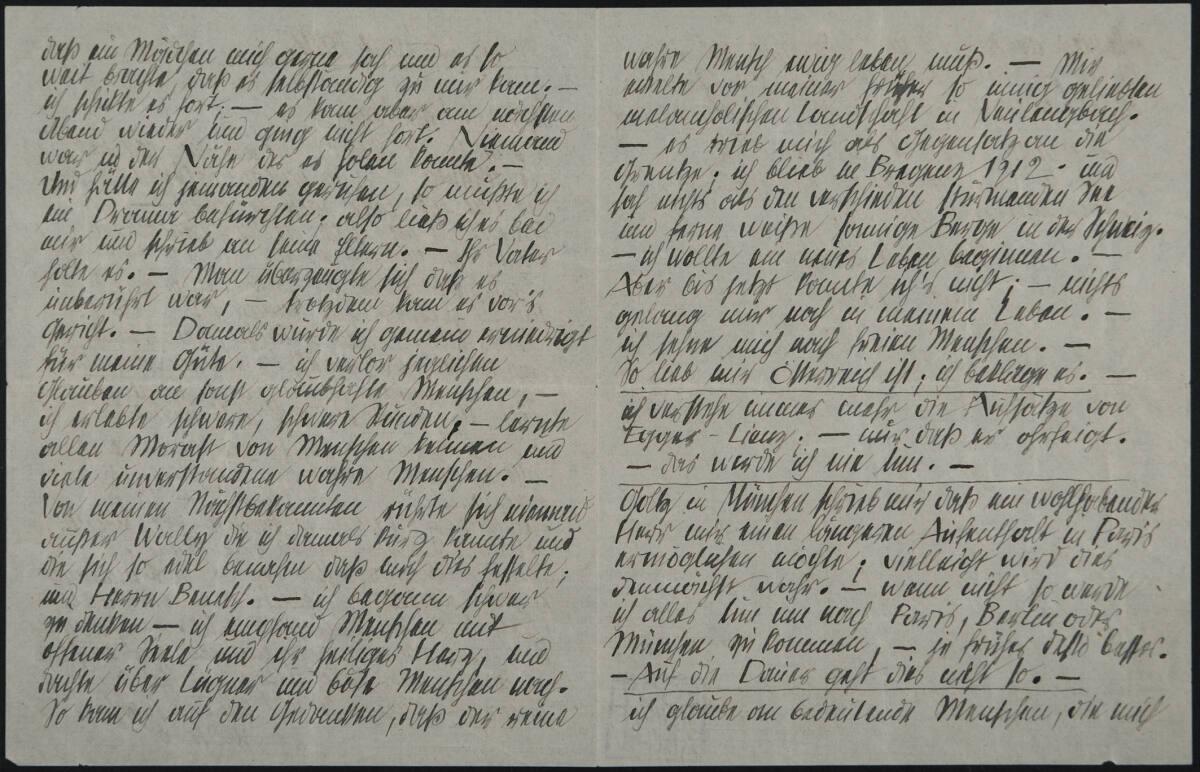 daß ein Mädchen mich gerne sah und es so
weit brachte, daß es selbständig zu mir kam. –
ich schikte es fort; – es kam aber am nächsten
Abend wieder und ging nicht fort. Niemand
war in der Nähe der es holen konnte. –
Und hätte ich jemanden gerufen, so müßte ich
ein Drama befürchten. also ließ ich es bei
mir und schrieb an seine Eltern. – Ihr Vater
holte es. – Man überzeugte sich daß es
unberührt war, – trotzdem kam es vor's
Gericht. – Damals wurde ich gemein erniedrigt
für meine Güte. – ich verlor jeglichen
Glauben an sonst glaubhafte Menschen, –
ich erlebte schwere, schwere Stunden, – lernte
allen Morast von Menschen kennen und
viele unverstandene wahre Menschen. –
Von meinen Nächstbekannten rührte sich niemand
außer Wally die ich damals kurz kannte und
die sich so edel benahm daß mich dies fesselte;
und Herrn Benesch. – ich begann schwer
zu denken – ich empfand Menschen mit
offener Seele und ihr heiliges Herz, und
dachte über Lügner und böse Menschen nach.
So kam ich auf den Gedanken, daß der reine
wahre Mensch einig leben muß. – Mir
ekelte vor meiner früher so innig geliebten
melancholischen Landschaft in Neulengbach.
– es trieb mich als Gegensatz an die
Grenze; ich blieb in Bregenz 1912 und
sah nichts als den verschieden stürmenden See
und ferne weiße sonnige Berge in der Schweiz.
– ich wollte ein neues Leben beginnen. –
Aber bis jetzt konnte ich's nicht; – nichts
gelang mir noch in meinem Leben. –
ich sehne mich nach freien Menschen. –
So lieb mir Österreich ist; ich beklage es. –
ich verstehe immer mehr die Aufsätze von
Egger-Lienz; – nur daß er ohrfeigt.
– das werde ich nie tun. –
Goltz in München schrieb mir daß ein wohlhabender
Herr mir einen längeren Aufenthalt in Paris
ermöglichen möchte; vielleicht wird dies
demnächst wahr. – wenn nicht so werde
ich alles tun um nach Paris, Berlin oder
München zu kommen, – je früher desto besser.
– Auf die Dauer geht dies nicht so. –
ich glaube an bedeutende Menschen, die mich